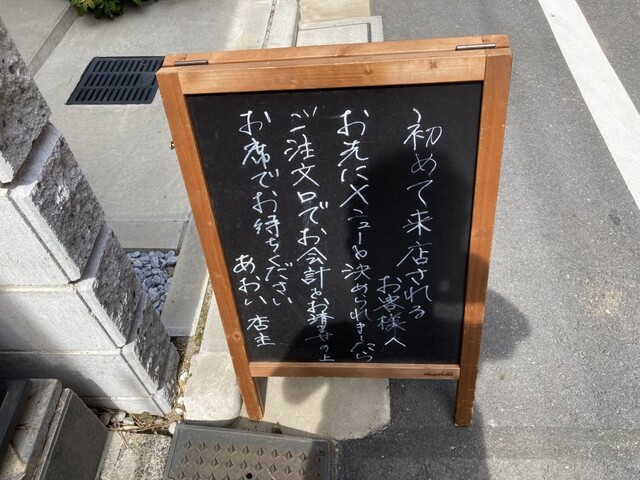 初めて来店される
お客様へ
お先にメニューを決められましたら
ご注文口でお会計をお済せの上
お席でお待ちください
あおい 店主